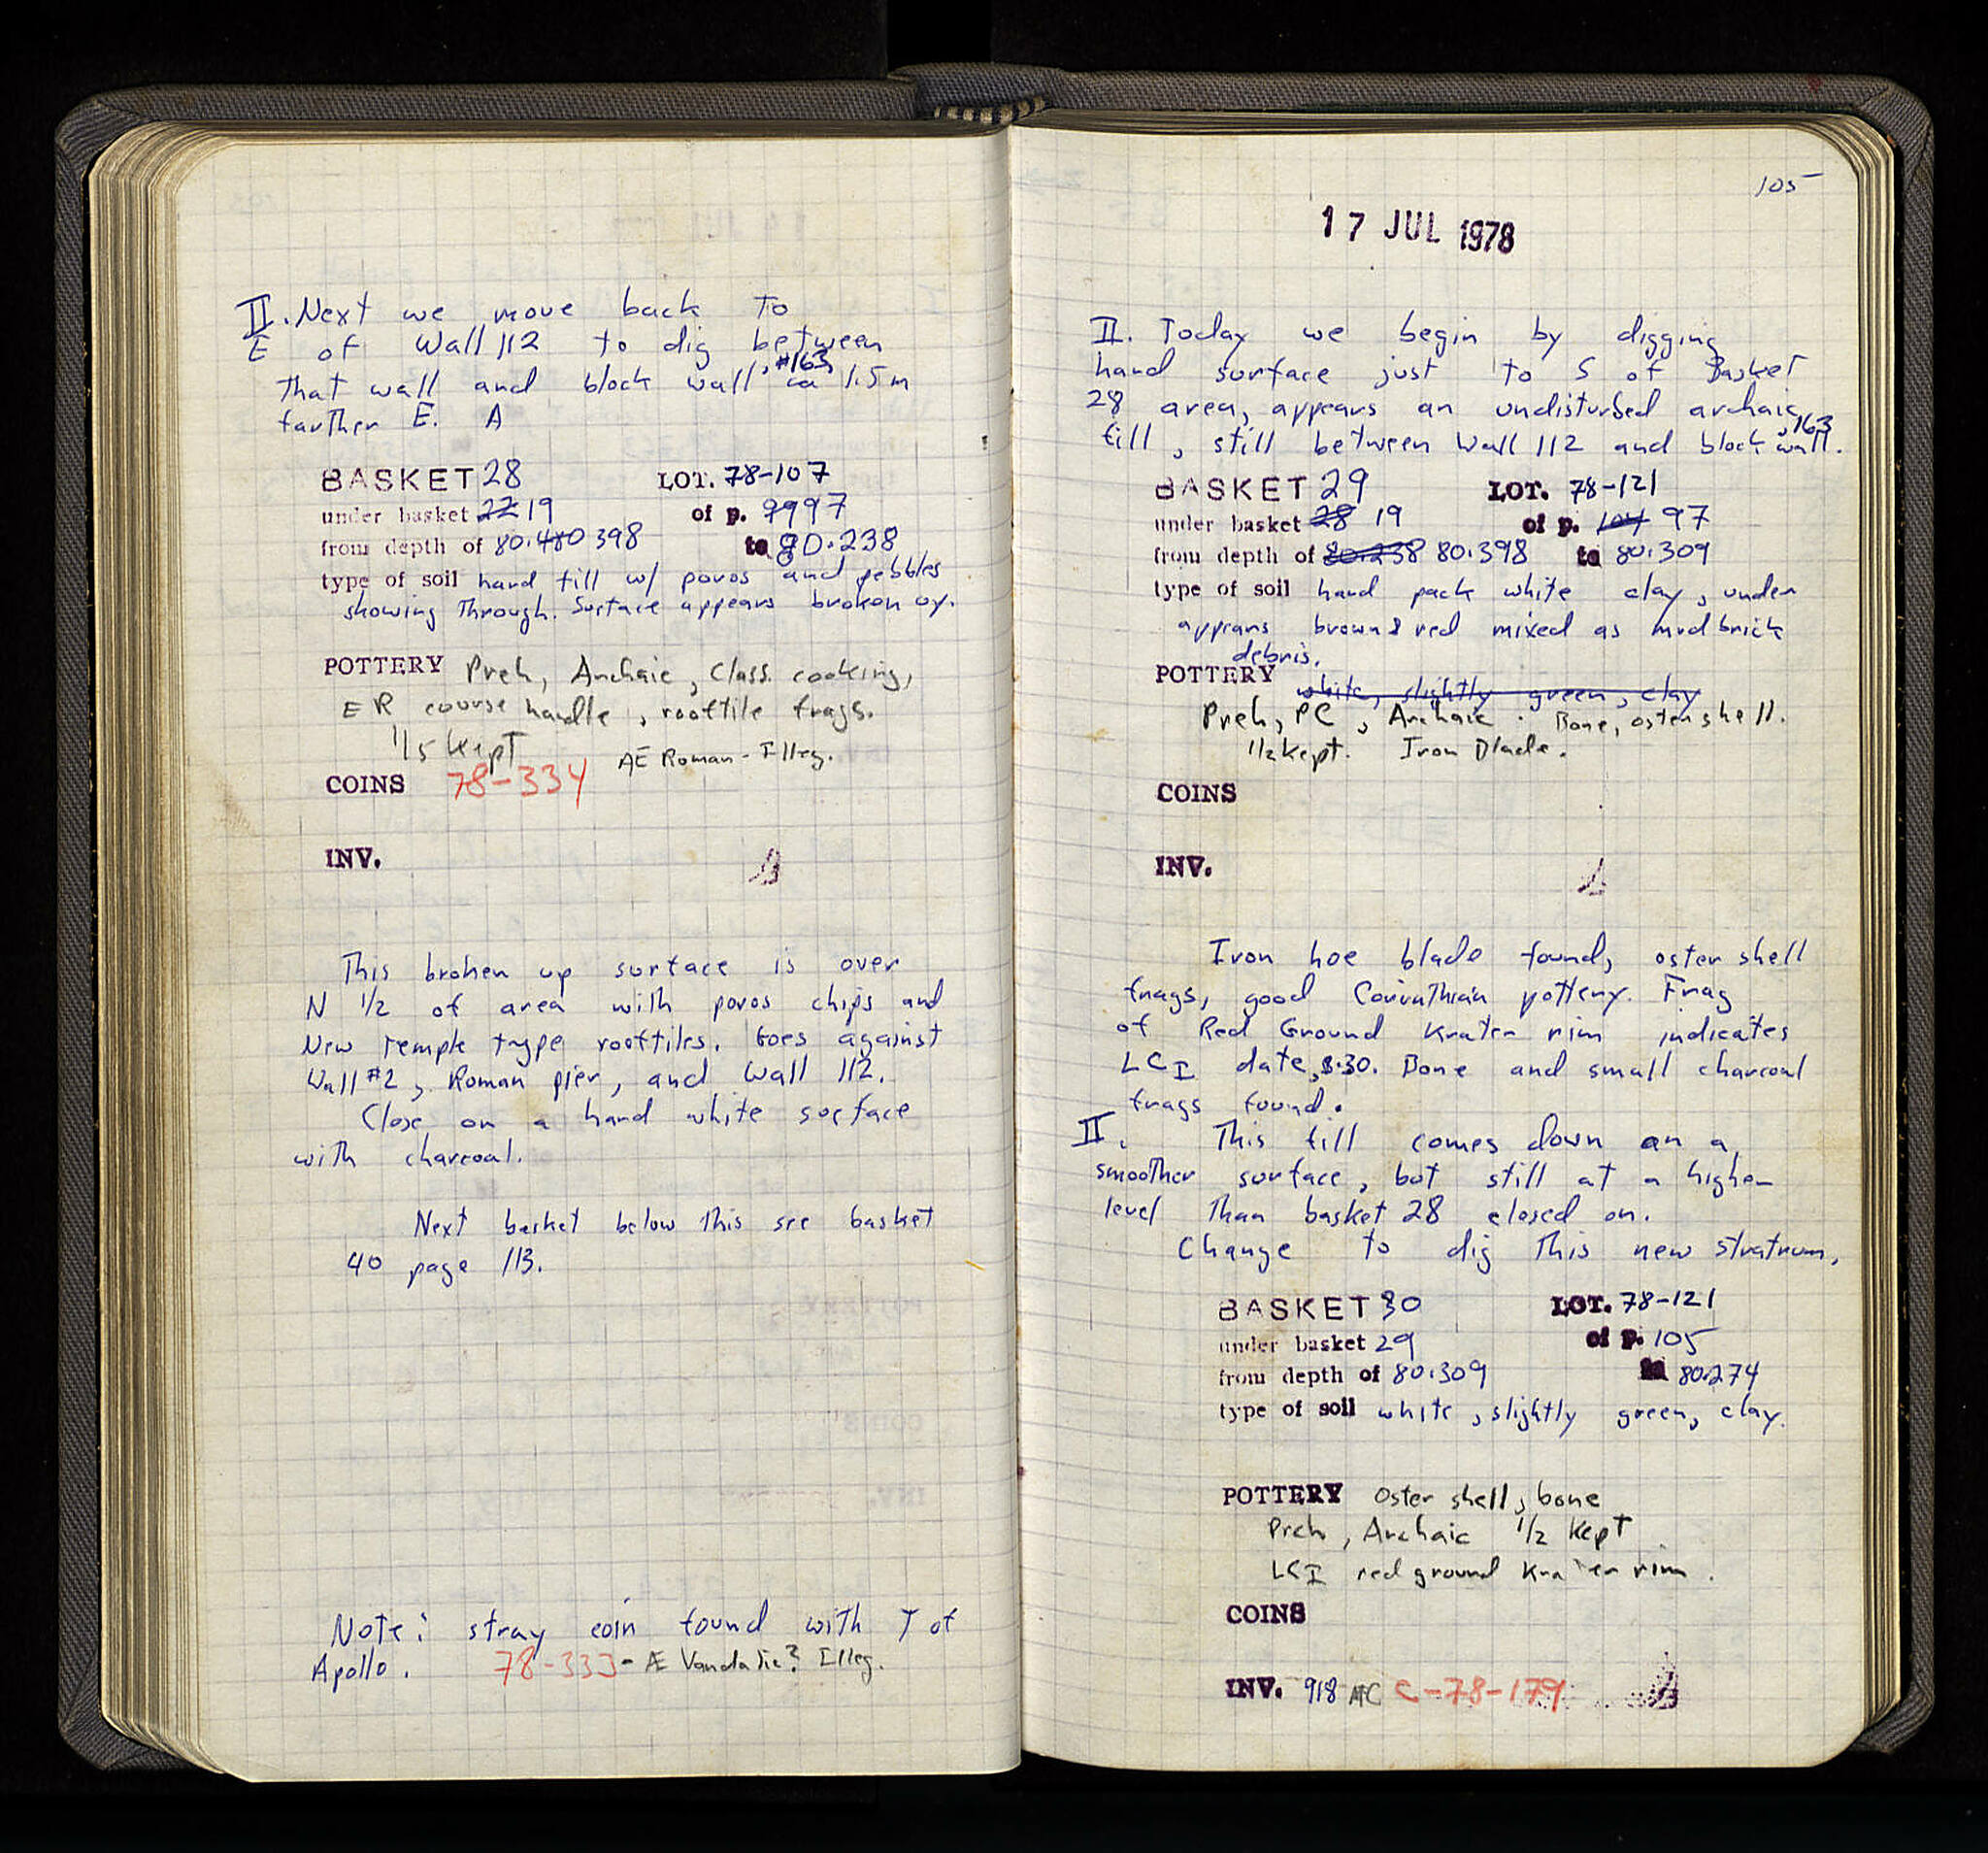 II. Next we move back to
E of Wall 112 to dig between
that wall and block wall, #163 ca 1.5m
farther E. A
BASKET 28 LOT. 78-107
under basket 22 19 of p. 99 97
from depth of 80.480 398 to 80.238
type of soil hard fill w/ poros and pebbles
showing through. Surface appears broken up.
POTTERY Preh, Archaic, Class. cooking,
ER course handle, rooftile frags.
1/5 Kept AE Roman - Illeg.
COINS 78-334
INV.
This broken up surface is over
N 1/2 of area with poros chips and
New Temple type rooftiles. Goes against
Wall #2, Roman pier, and Wall 112.
Close on a hard white surface
with charcoal.
Next basket below this see basket
40 page 113.
Note: stray coin found with T of
Apollo. 78-333 - Æ Vandalic? Illeg.
105
17 JUL 1978
II. Today we begin by digging
hard surface just to S of Basket
28 area, appears an undisturbed archaic
fill, still between Wall 112 and block wall, 163.
BASKET 29 LOT. 78-121
under basket 28 19 of p. 104 97
from depth of 80.238 80.398 to 80.309
type of soil hard pack white clay, under
appears brown & red mixed as mudbrick
debris.
POTTERY white, slightly green, clay
Preh, PC, Archaic. Bone, oster shell.
1/2 kept. Iron Blade.
COINS
INV.
Iron hoe blade found, oster shell
frags, good Corinthian pottery. Frag
of Red Ground Krater rim indicates
LCI date, B.30. Bone and small charcoal
frags found.
II. This fill comes down an a
smoother surface, but still at a higher
level than basket 28 closed on.
Change to dig this new stratum.
BASKET 30 LOT. 78-121
under basket 29 of p. 105
from depth of 80.309 to 80.274
type of soil white, slightly green, clay.
POTTERY Oster shell, bone
Preh, Archaic 1/2 Kept
LCI red ground Krater rim.
COINS
INV. 918 C-78-179